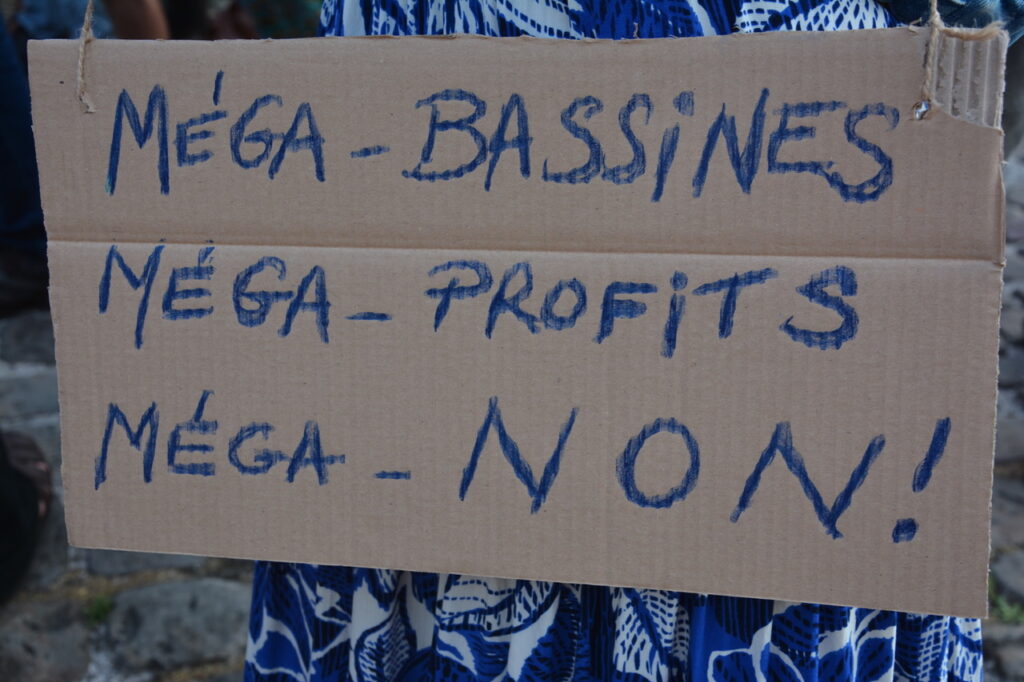 MÉGA-BASSiNES
MÉGA-PROFiTS
MÉGA-NON!